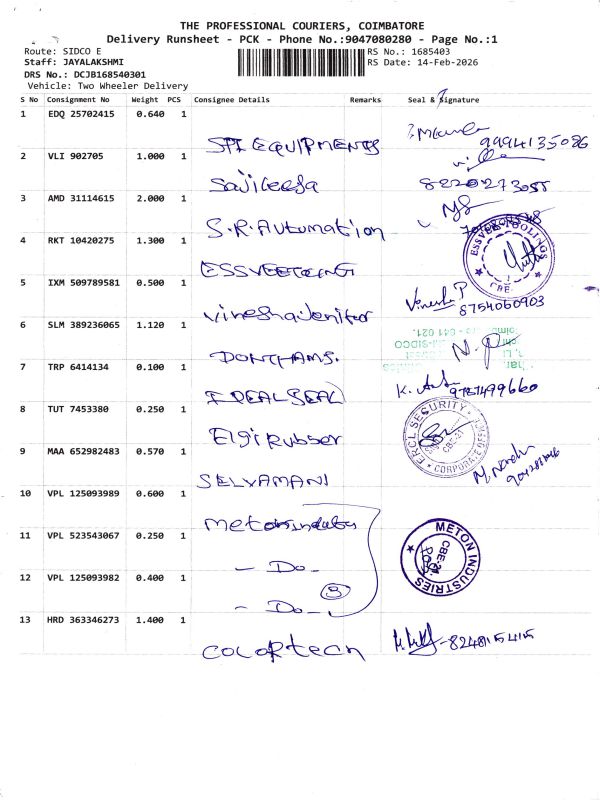 THE PROFESSIONAL COURIERS, COIMBATORE
Delivery Runsheet - PCK - Phone No.:9047080280 - Page No.:1
Route: SIDCO E
RS No.: 1685403
Staff: JAYALAKSHMI
RS Date: 14-Feb-2026
DRS No.: DCJB168540301
Vehicle: Two Wheeler Delivery
S No Consignment No Weight PCS Consignee Details Remarks Seal & Signature
1 EDQ 25702415 0.640 1
SPI EQUIPMENTS 9994135086
2 VLI 902705 1.000 1
8220273055
3 AMD 31114615 2.000 1
S.R.Automation
4 RKT 10420275 1.300 1
ESSVEE TOOLINGS
CBE-
5 IXM 509789581 0.500 1
Vinesh P
8754060903
6 SLM 389236065 1.120 1
DONTHAMS.
7 TRP 6414134 0.100 1
IDEAL SEAL
9787499660
8 TUT 7453380 0.250 1
Elgi Rubber
ERCL SECURITY
CBE-21
CORPORATE OFFICE
9 MAA 652982483 0.570 1
SELVAMANI
10 VPL 125093989 0.600 1
11 VPL 523543067 0.250 1
- Do -
METON INDUSTRIES
CBE-21
12 VPL 125093982 0.400 1
3
- Do -
13 HRD 363346273 1.400 1
COLORTECH